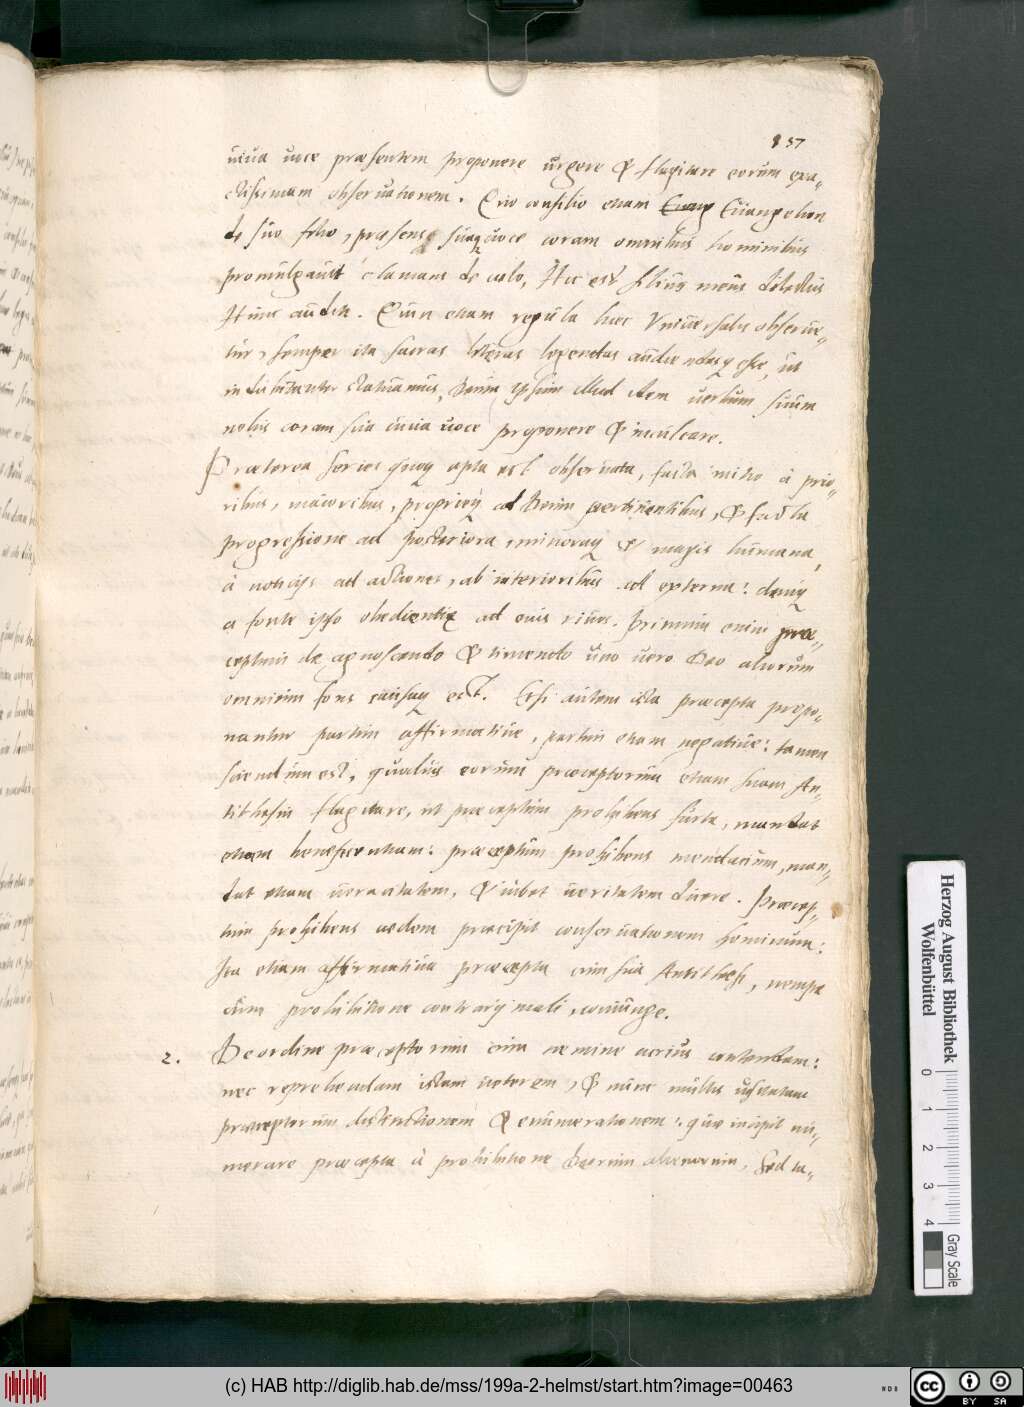 857
uiua uoce præsentem proponere urgere & flagitare eorum exa-
ctissimam obseruationem. Quo consilio etiam Euang Euangelion
de suo filio, præsens suaq uoce coram omnibus hominibus
promulgauit clamans de cælo, Hic est filius meus dilectus
Hunc audite. Cum etiam regula hæc Vniuersalis obserue-
tur, semper ita sacras literas legendas audiendasq esse, ut
indubitanter statuamus, Deum ipsum illud idem uerbum suum
nobis coram sua uiua uoce proponere & inculcare.
Præterea series quoq apta est obseruata, facto initio à prio-
ribus, maioribus, proprieq ad Deum pertinentibus, & facta
progressione ad posteriora, minoraq & magis humana,
à noticijs ad actiones, ab interioribus ad externa: deniq
a fonte ipso obedientiæ ad eius riuos. Primum enim præ-
ceptum de agnoscendo & timendo uno uero Deo aliorum
omnium fons causaq est. Etsi autem ista præcepta propo-
nantur partim affirmatiue, partim etiam negatiue: tamen
sciendum est, quoduis eorum præceptorum etiam suam An-
tithesin flagitare, ut præceptum prohibens furta, mandat
etiam beneficentiam: præceptum prohibens mendacium, man-
dat etiam ueracitatem, & iubet ueritatem dicere. Præcep-
tum prohibens cædem præcipit conseruationem hominum:
Ita etiam affirmatiua præcepta cum sua Antithesi, nempe
cum prohibitione contrarij mali, coniunge.
2. De ordine præceptorum cum nemine acrius contendam:
nec reprehendam istam ueterem, & nunc multis usitatam
præceptorum distinctionem & enumerationem: quæ incipit nu-
merare præcepta à prohibitione Deorum alienorum, Sed ta-
Herzog August Bibliothek
Wolfenbüttel
0 1 2 3 4
Gray Scale
(c) HAB http://diglib.hab.de/mss/199a-2-helmst/start.htm?image=00463
cc BY SA